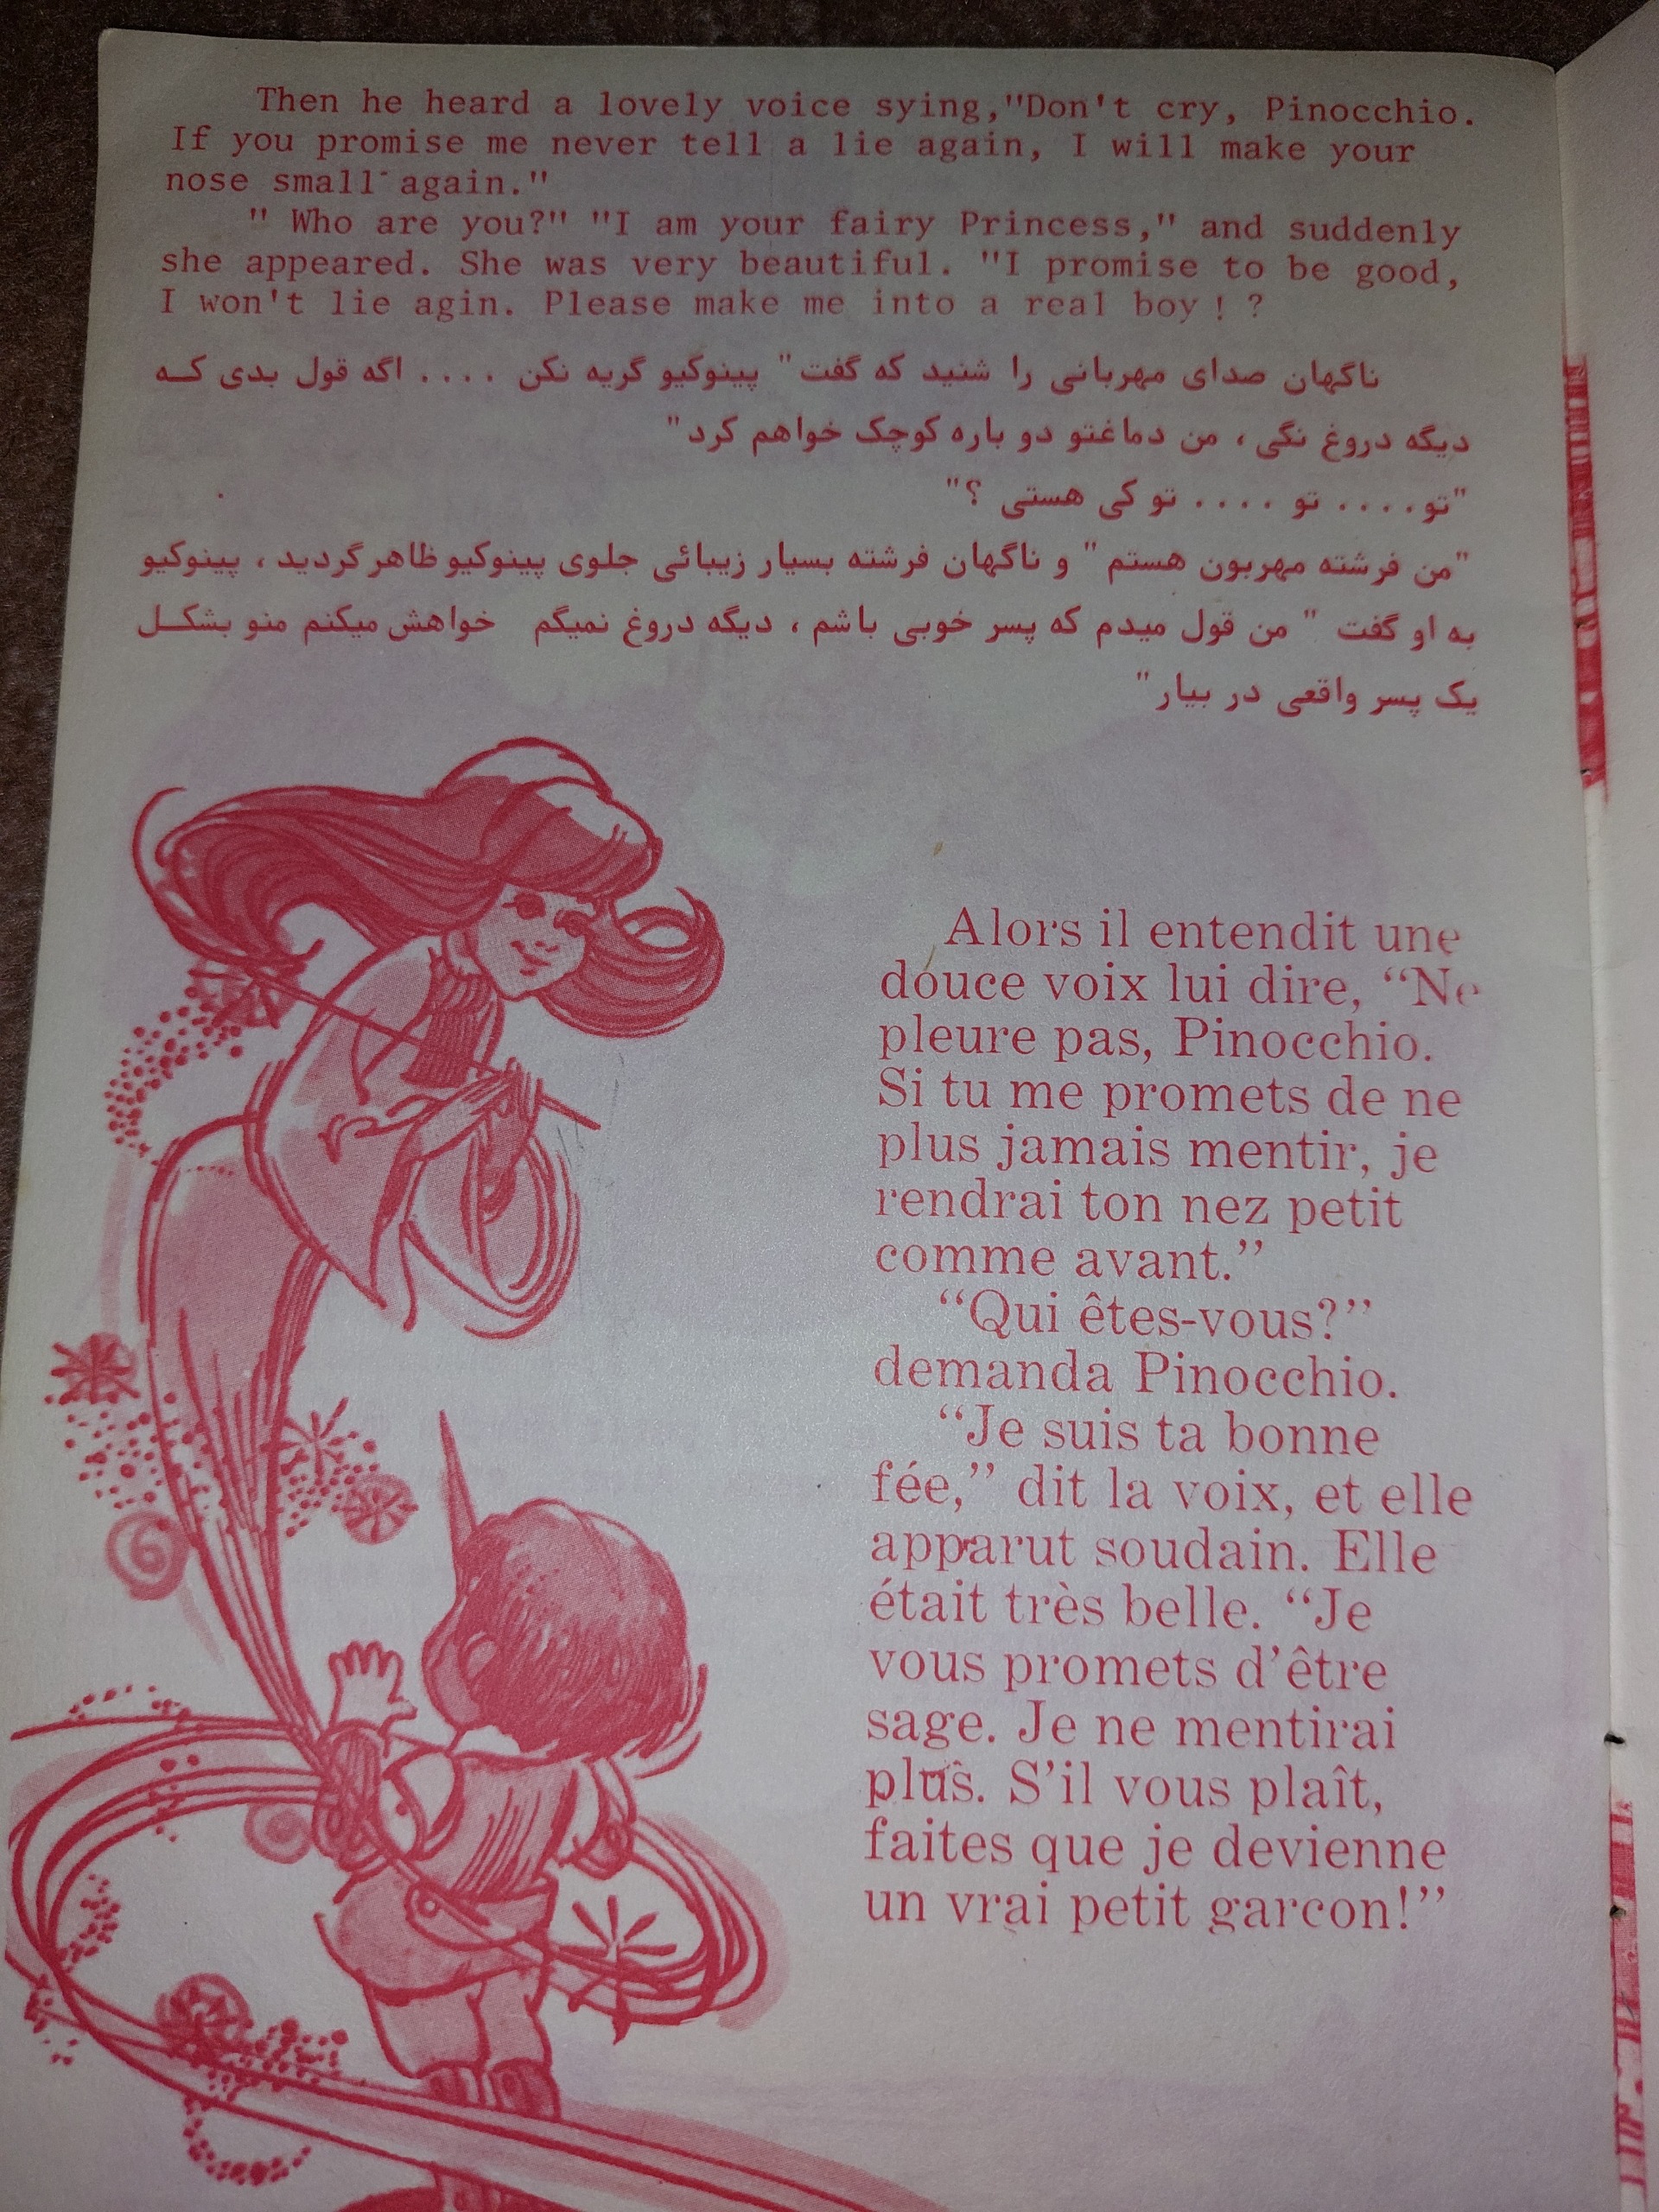 Then he heard a lovely voice sying,"Don't cry, Pinocchio.
If you promise me never tell a lie again, I will make your
nose small again."
" Who are you?" "I am your fairy Princess," and suddenly
she appeared. She was very beautiful. "I promise to be good,
I won't lie agin. Please make me into a real boy ! ?
ناگهان صدای مهربانی را شنید که گفت " پینوکیو گریه نکن .... اگه قول بدی کـه
دیگه دروغ نگی ، من دماغتو دو باره کوچک خواهم کرد "
"تو.... تو .... تو کی هستی ؟"
"من فرشته مهربون هستم " و ناگهان فرشته بسیار زیبائی جلوی پینوکیو ظاهر گردید ، پینوکیو
به او گفت " من قول میدم که پسر خوبی باشم ، دیگه دروغ نمیگم خواهش میکنم منو بشکـل
یک پسر واقعی در بیار "
Alors il entendit une
douce voix lui dire, “Ne
pleure pas, Pinocchio.
Si tu me promets de ne
plus jamais mentir, je
rendrai ton nez petit
comme avant.”
“Qui êtes-vous?”
demanda Pinocchio.
“Je suis ta bonne
fée,” dit la voix, et elle
apparut soudain. Elle
était très belle. “Je
vous promets d’être
sage. Je ne mentirai
plus. S’il vous plaît,
faites que je devienne
un vrai petit garcon!”